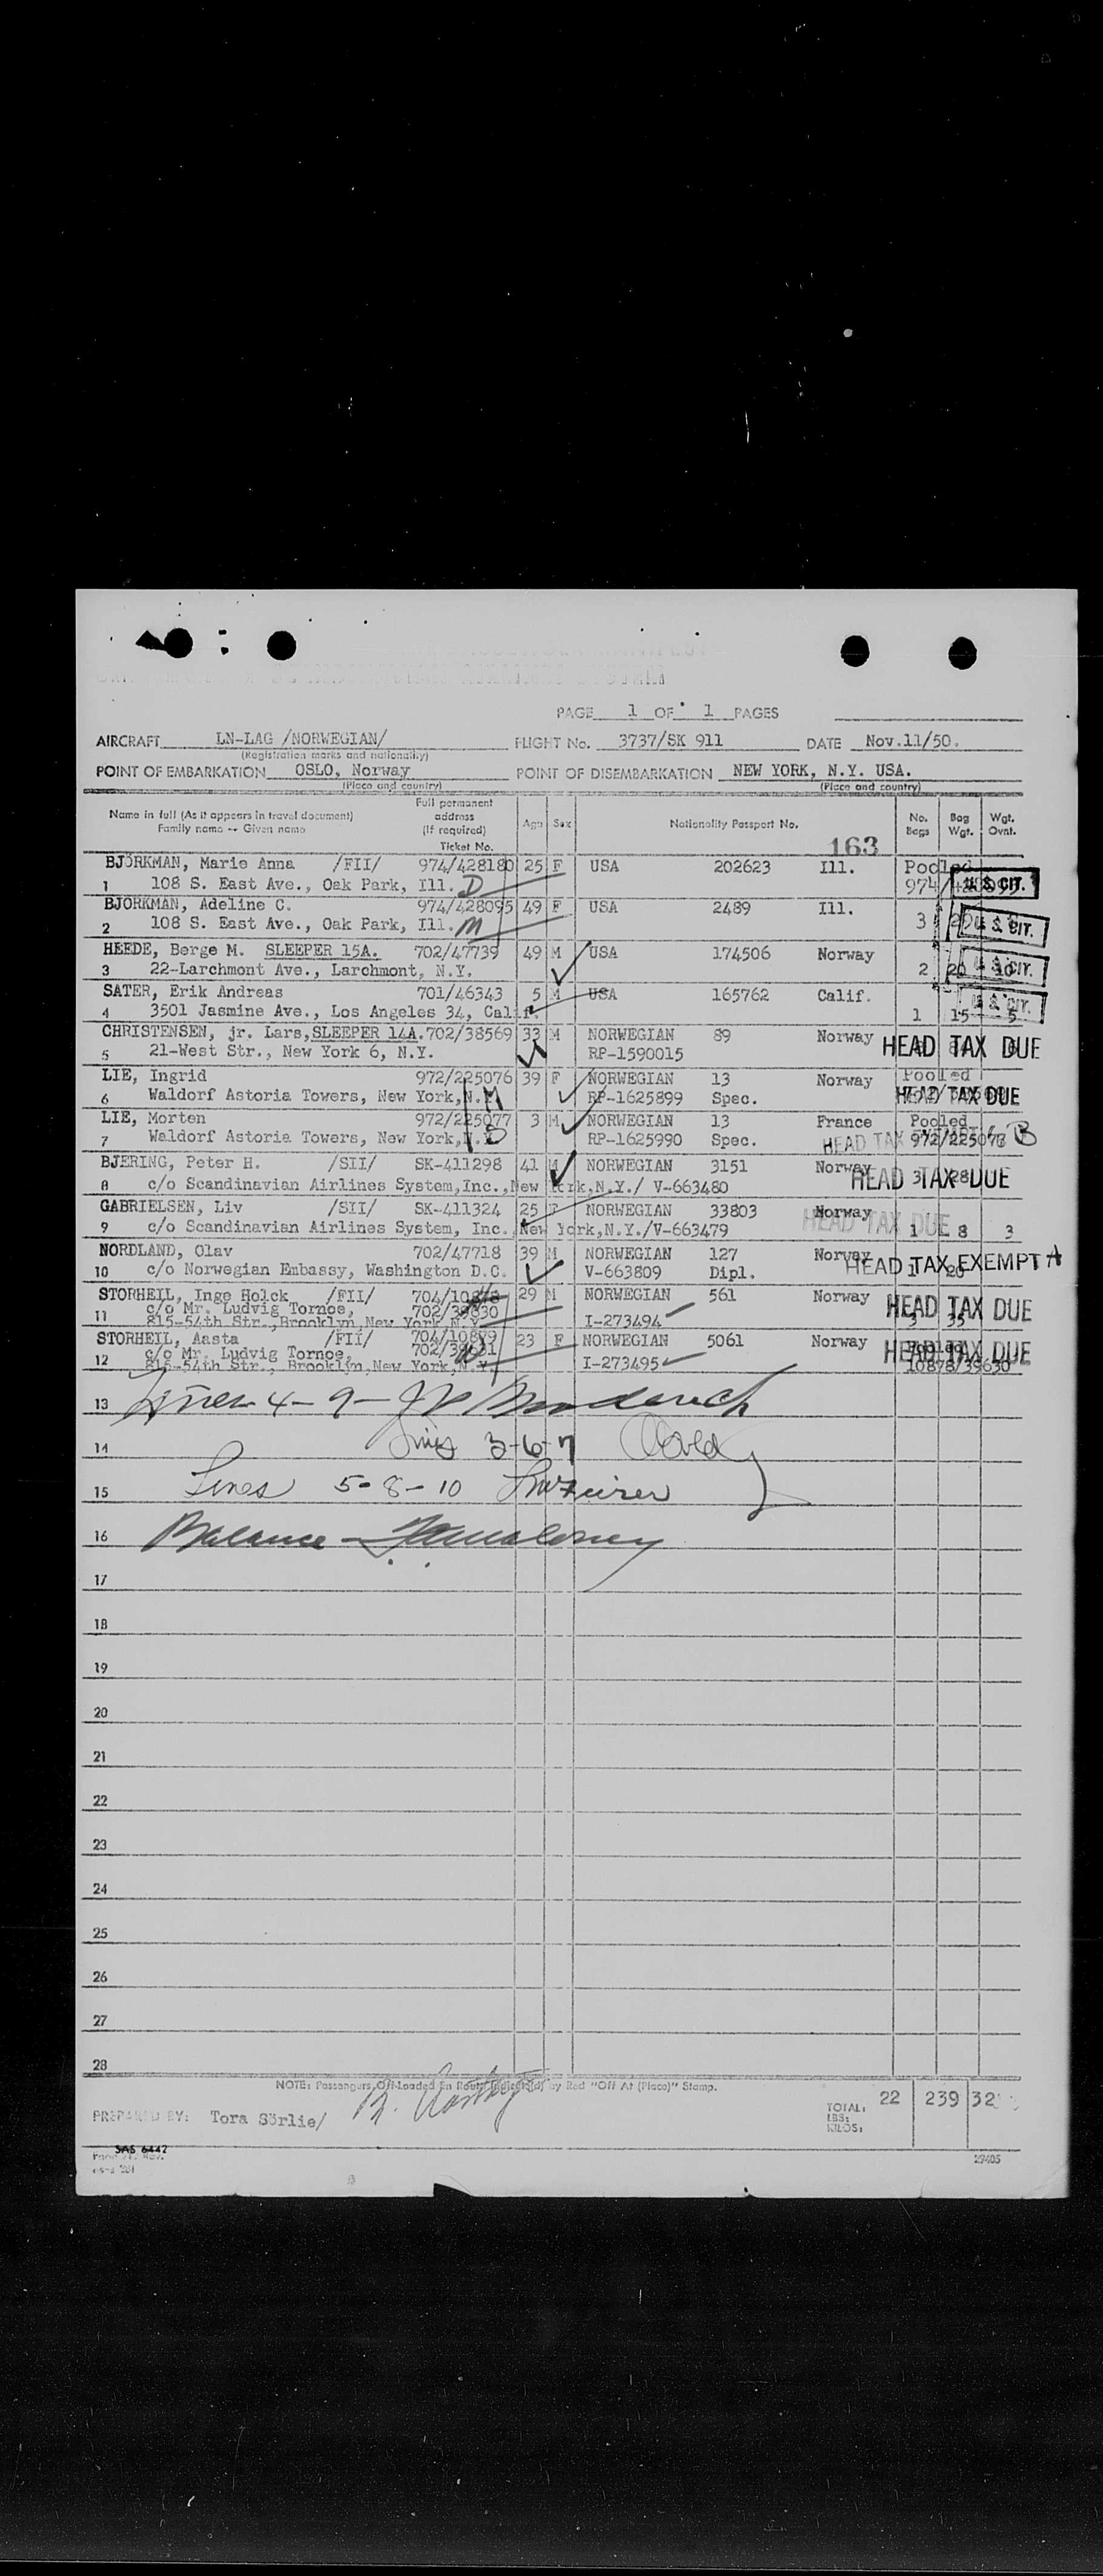 PAGE 1 OF 1 PAGES
AIRCRAFT LN-LAG /NORWEGIAN/ FLIGHT No. 3737/SK 911 DATE Nov.11/50.
(Registration marks and nationality)
POINT OF EMBARKATION OSLO, Norway POINT OF DISEMBARKATION NEW YORK, N.Y. USA.
(Place and country) (Place and country)
Name in full (As it appears in travel document) Family name -- Given name Full permanent address (If required) Ticket No. Age Sex Nationality Passport No. No. Bags Bag Wgt. Wgt. Ovnt.
163
BJÖRKMAN, Marie Anna /FII/ 974/428180 25 F USA 202623 Ill. Pooled
1 108 S. East Ave., Oak Park, Ill. D U.S. CIT.
BJORKMAN, Adeline C. 974/428095 49 F USA 2489 Ill. 3
2 108 S. East Ave., Oak Park, Ill. M U.S. CIT.
HEEDE, Berge M. SLEEPER 15A. 702/47739 49 M USA 174506 Norway
3 22-Larchmont Ave., Larchmont, N.Y. 2 20 10 U.S. CIT.
SATER, Erik Andreas 701/46343 5 M USA 165762 Calif.
4 3501 Jasmine Ave., Los Angeles 34, Calif. 1 15 5 U.S. CIT.
CHRISTENSEN, jr. Lars, SLEEPER 14A. 702/38569 33 M NORWEGIAN 89 Norway HEAD TAX DUE
5 21-West Str., New York 6, N.Y. RP-1590015
LIE, Ingrid 972/225076 39 F NORWEGIAN 13 Norway Pooled
6 Waldorf Astoria Towers, New York, N.Y. M RP-1625899 Spec. HEAD TAX DUE
LIE, Morten 972/225077 3 M NORWEGIAN 13 France Pooled
7 Waldorf Astoria Towers, New York, N.Y. RP-1625990 Spec. HEAD TAX 972/225076 B
BJERING, Peter H. /SII/ SK-411298 41 M NORWEGIAN 3151 Norway HEAD TAX DUE
8 c/o Scandinavian Airlines System, Inc., New York, N.Y./ V-663480 3 28
GABRIELSEN, Liv /SII/ SK-411324 25 F NORWEGIAN 33803 Norway HEAD TAX DUE
9 c/o Scandinavian Airlines System, Inc. New York, N.Y./V-663479 1 8 3
NORDLAND, Olav 702/47718 39 M NORWEGIAN 127 Norway HEAD TAX EXEMPT A
10 c/o Norwegian Embassy, Washington D.C. V-663809 Dipl. 1 20
STORHEIL, Inge Holck /FII/ 704/10878 29 M NORWEGIAN 561 Norway HEAD TAX DUE
c/o Mr. Ludvig Tornoe, 702/39630
11 815-54th Str., Brooklyn, New York N.Y. I-273494 3 35
STORHEIL, Aasta /FII/ 704/10879 23 F NORWEGIAN 5061 Norway HEAD TAX DUE
c/o Mr. Ludvig Tornoe, 702/39631
12 815-54th Str., Brooklyn, New York, N.Y. I-273495 10878/39630
13 Lines 4-9-
14 3-6-7
15 Lines 5-8-10
16 Balance -
17
18
19
20
21
22
23
24
25
26
27
28
NOTE: Passengers Off-Loaded En Route Indicated by Red "Off At (Place)" Stamp.
PREPARED BY: Tora Sörlie/ TOTAL: LBS: KILOS: 22 239 32
SAS 6442
29405